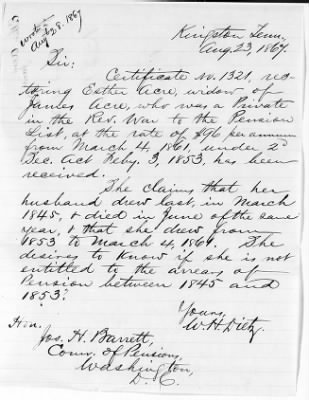 wrote
Aug 28. 1867
Kingston Tenn.
Aug. 23, 1867.
Sir:
Certificate No. 1321, res-
toring Esther Acre, widow of
James Acre, who was a Private
in the Rev. War to the Pension
List, at the rate of $96 per annum
from March 4, 1861, under 2d
Sec. Act Feby. 3, 1853, has been
received.
She claims that her
husband drew last, in March
1845, & died in June of the same
year, & that she drew from
1853 to March 4, 1861. She
desires to know if she is not
entitled to the arrears of
Pension between 1845 and
1853?
Yours,
W. H. Dietz
Hon.
Jos. H. Barrett,
Comr. of Pensions,
Washington,
D. C.